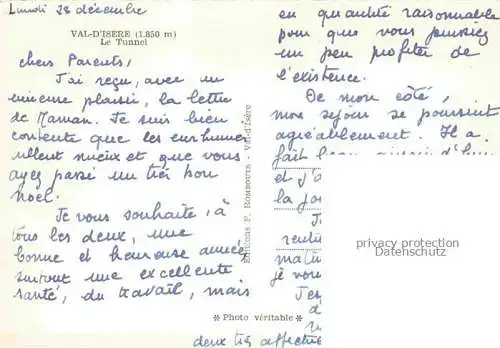 Lundi 28 décembre
VAL-D'ISERE (1.850 m)
Le Tunnel
chers Parents,
J'ai reçu, avec un
immense plaisir, la lettre
de Maman. Je suis bien
contente que les
aillent mieux et que vous
ayez passé un très bon
noël.
Je vous souhaite, à
tous les deux, une
bonne et heureuse année
surtout une excellente
santé, du travail, mais
en quantité raisonnable
pour que vous puissiez
un peu profiter de
l'existence.
De mon côté,
mon séjour se poursuit
agréablement. Il a
fait beau
et j'a
la jo
J
rentre
matin
je vou
J'es
d
deux très affectue
Editions F. ROMBOUTS - Val-d'Isère
* Photo véritable *
privacy protection
Datenschutz